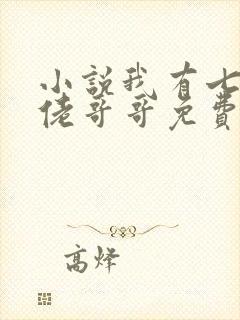 小說我有七
佬哥哥免費
高烽